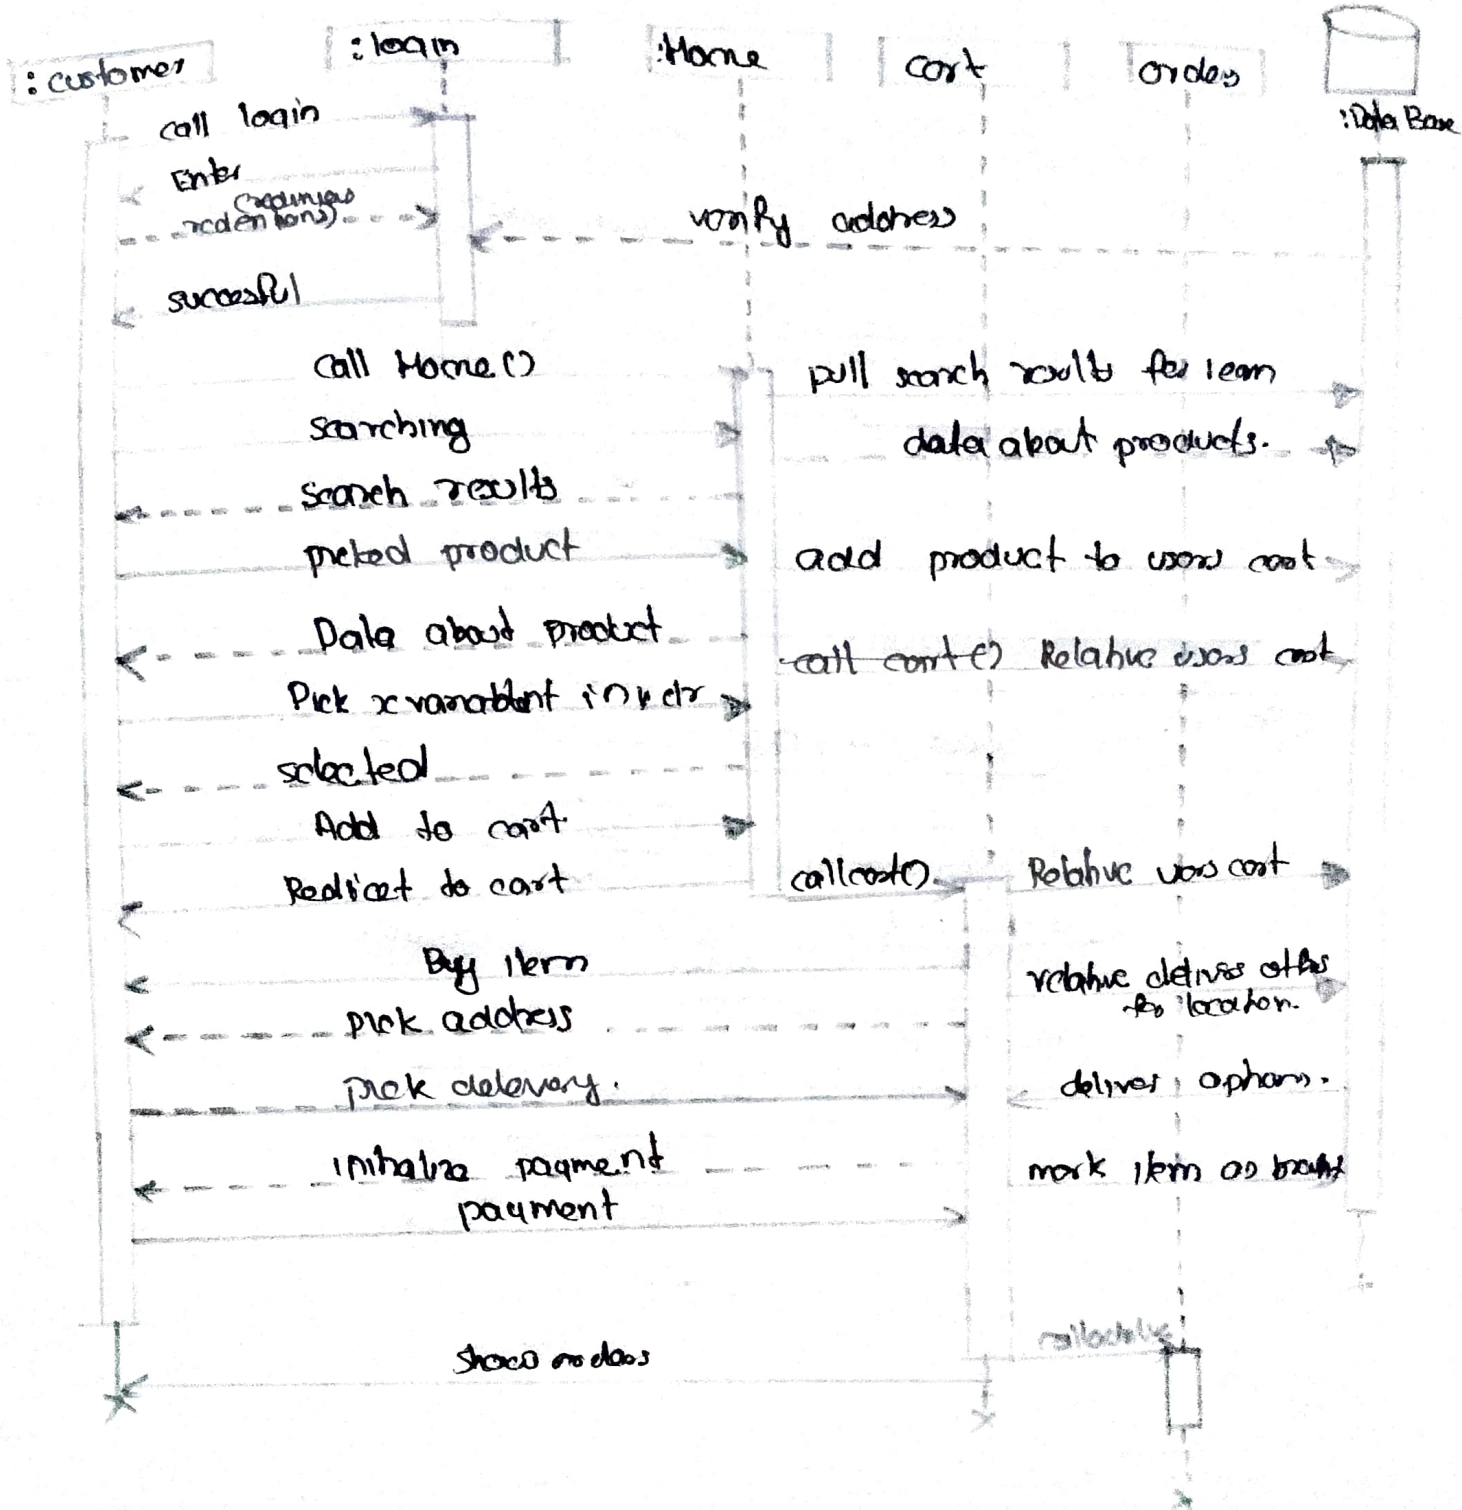 :customer
:login
:Home
cart
order
:Data Base
call login
Enter
verify address
succesful
call Home()
pull search results for
searching
data about products.
search results
picked product
add product to users cart
Data about product
call cart() Relative users cart
Pick x
selected
Add to cart
Redirect to cart
callcart()
Relative users cart
Buy item
relative deliver
for location.
pick address
pick delevery.
deliver options.
initialize payment
mark item as
payment
show orders